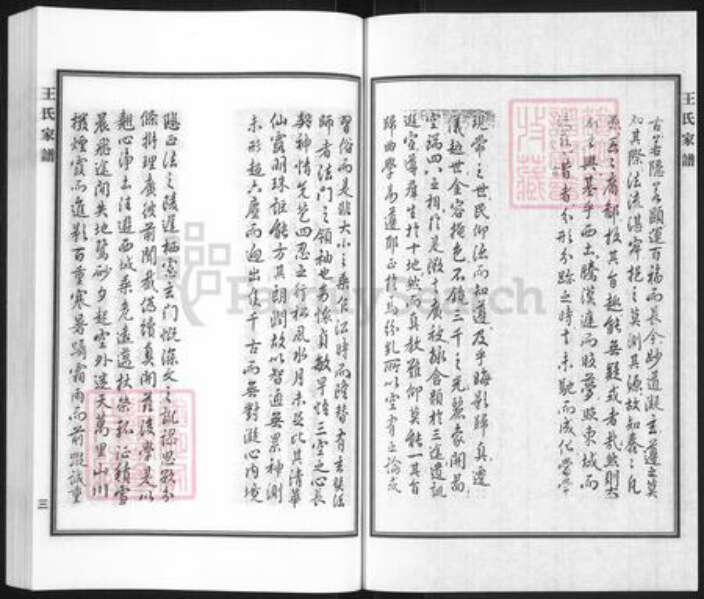 王氏家譜
古若隱若顯運百福而長今妙道凝玄遵之莫
知其際法流湛寂挹之莫測其源故知蠢蠢凡
愚區區庸鄙投其旨趣能無疑或者哉然則大
教之興基乎西土騰漢庭而皎夢照東域而
流慈昔者分形分跡之時言未馳而成化當常
現常之世民仰德而知遵及乎晦影歸真遷
儀越世金容掩色不鏡三千之光麗象開圖
空端四八之相於是微言廣被拯含類於三途遺訓
遐宣導群生於十地然而真教難仰莫能一其旨
歸曲學易遵邪正於焉紛糺所以空有之論或
習俗而是非大小之乘乍沿時而隆替有玄奘法
師者法門之領袖也幼懷貞敏早悟三空之心長
契神情先苞四忍之行松風水月未足比其清華
仙露明珠詎能方其朗潤故以智通無累神測
未形超六塵而迥出隻千古而無對凝心內境
悲正法之陵遲栖慮玄門慨深文之訛謬思欲分
條析理廣彼前聞截偽續真開茲後學是以
翹心淨土往遊西域乘危遠邁杖策孤征積雪
晨飛途間失地驚砂夕起空外迷天萬里山川
撥煙霞而進影百重寒暑躡霜雨而前蹤誠重
王氏家譜
三
FamilySearch